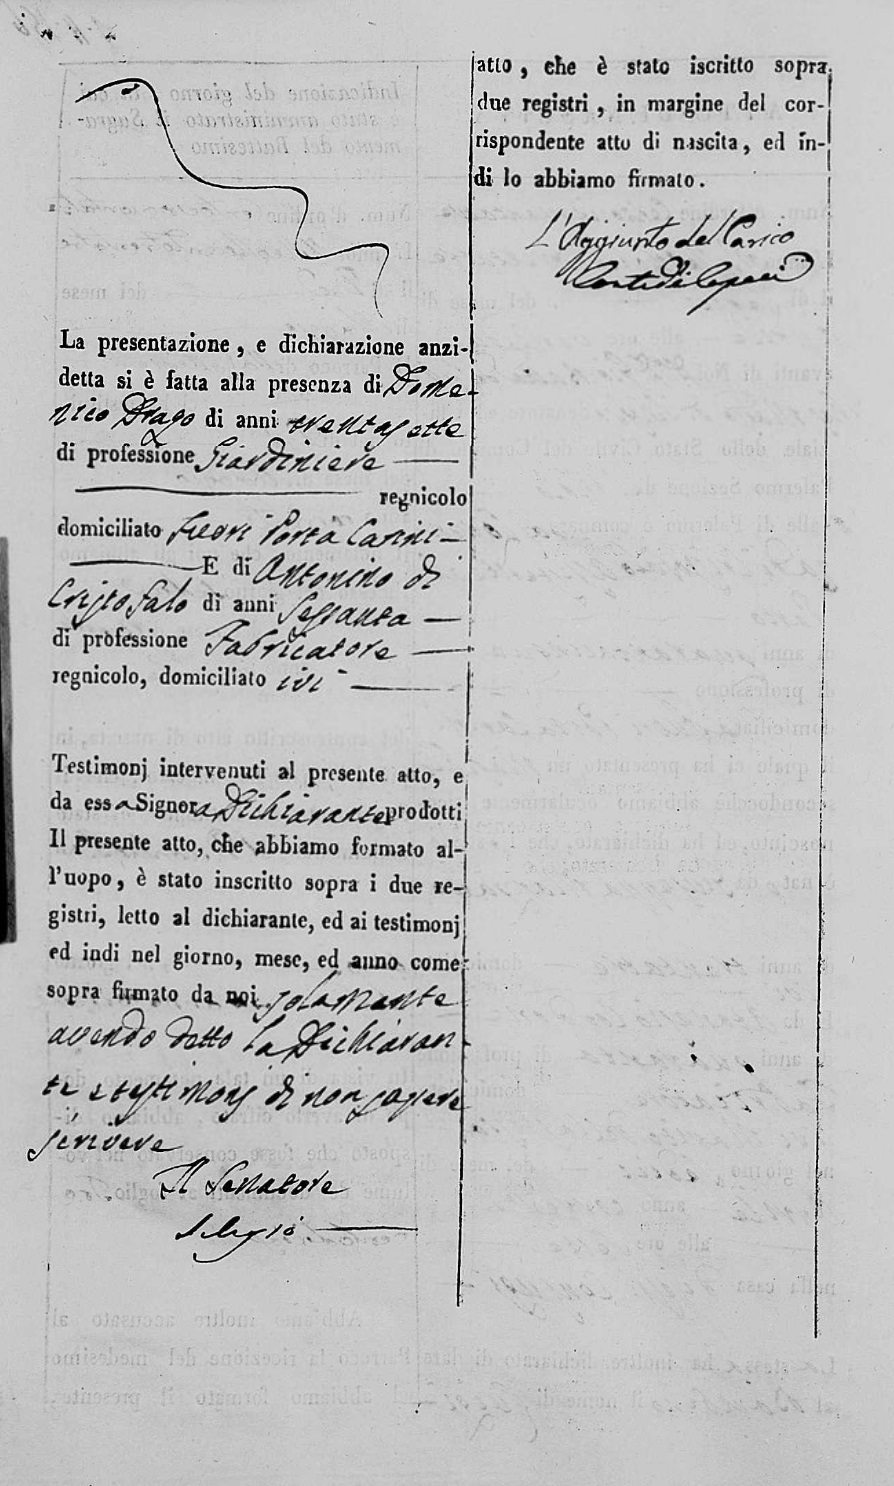 La presentazione, e dichiarazione anzi-
detta si è fatta alla presenza di Dome-
nico Drago di anni trentasette
di professione Giardiniere
regnicolo
domiciliato fuori Porta Carini
E di Antonino di
Cristofalo di anni Sessanta
di professione Fabricatore
regnicolo, domiciliato ivi
Testimonj intervenuti al presente atto, e
da essa Signora Dichiarante prodotti
Il presente atto, che abbiamo formato al-
l'uopo, è stato inscritto sopra i due re-
gistri, letto al dichiarante, ed ai testimonj
ed indi nel giorno, mese, ed anno come
sopra firmato da noi solamente
avendo detto la Dichiaran-
te e testimonj di non sapere
scrivere
Il Senatore
atto, che è stato iscritto sopra
due registri, in margine del cor-
rispondente atto di nascita, ed in-
di lo abbiamo firmato.
L'Aggiunto del Carico
Conte di Capaci